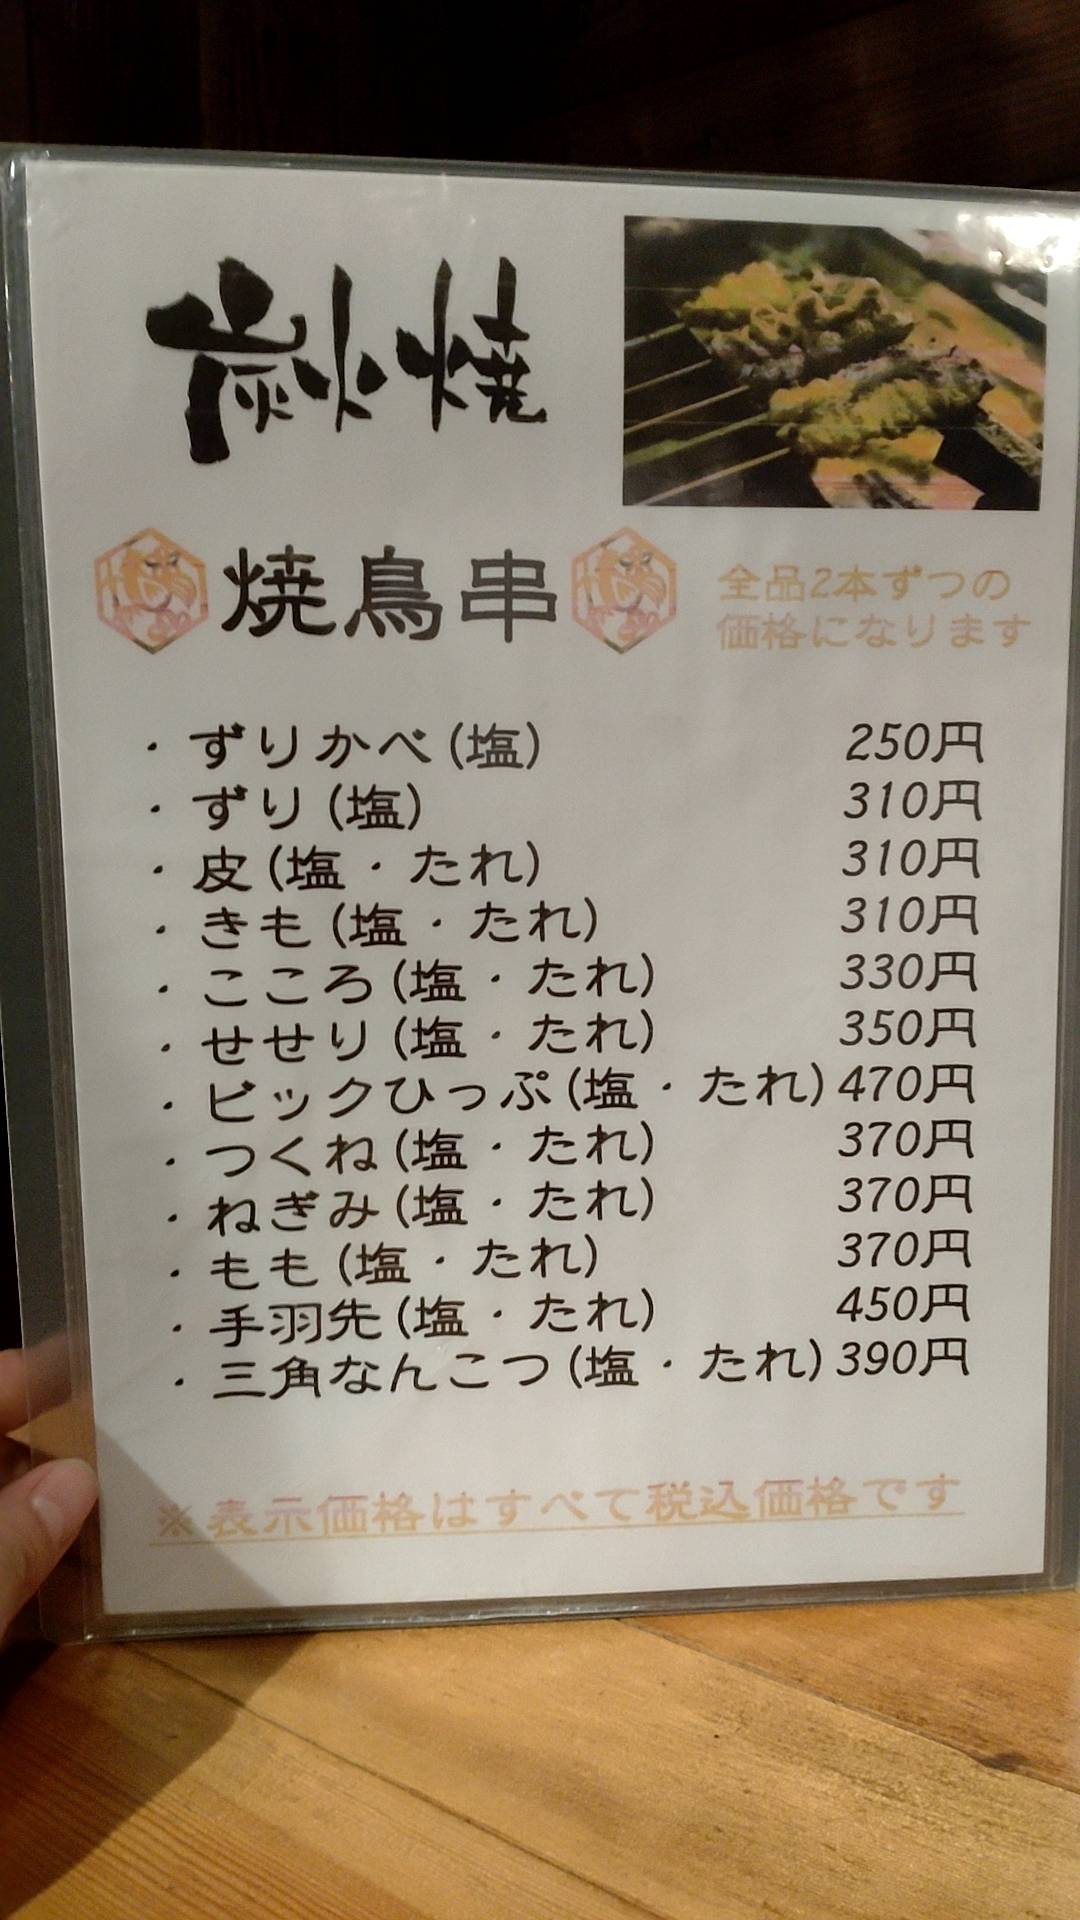 炭火焼
焼鳥串
全品2本ずつの
価格になります
・ずりかべ(塩) 250円
・ずり(塩) 310円
・皮(塩・たれ) 310円
・きも(塩・たれ) 310円
・こころ(塩・たれ) 330円
・せせり(塩・たれ) 350円
・ビックひっぷ(塩・たれ) 470円
・つくね(塩・たれ) 370円
・ねぎみ(塩・たれ) 370円
・もも(塩・たれ) 370円
・手羽先(塩・たれ) 450円
・三角なんこつ(塩・たれ) 390円
※表示価格はすべて税込価格です